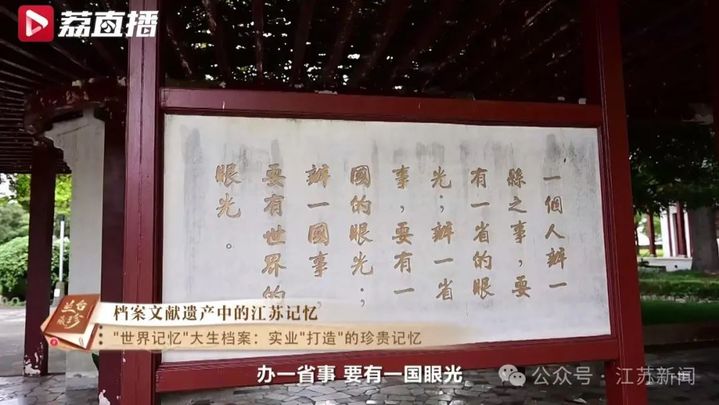 荔直播
一個人辦一
縣之事，要
有一省的眼
光；辦一省
事，要有一
國的眼光；
辦一國事，
要有世界的
眼光。
兰台
藏珍
档案文献遗产中的江苏记忆
"世界记忆"大生档案：实业"打造"的珍贵记忆
办一省事 要有一国眼光
公众号·江苏新闻